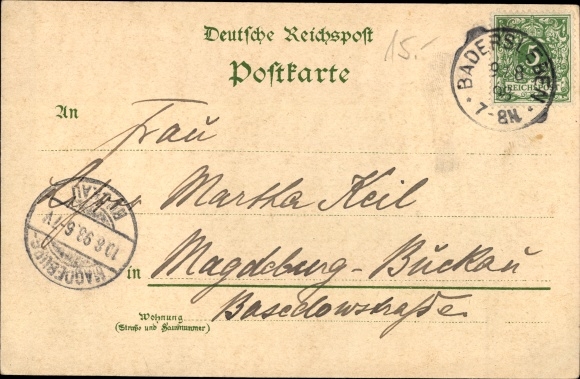 Deutsche Reichspost
Postkarte
15.-
BADERSLEBEN
9 8
98
7-8N.
5
REICHSPOST
An
Frau
Martha Keil
in Magdeburg-Buckau
Basedowstraße
Wohnung
(Straße und Hausnummer)
MAGDEBURG-
10.8.98.6-7V
BUCKAU